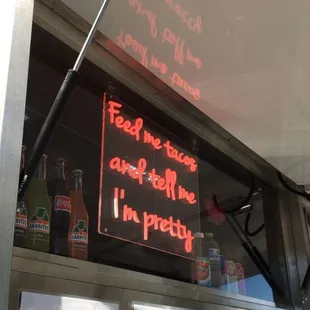 Feed me tacos
and tell me
I'm pretty